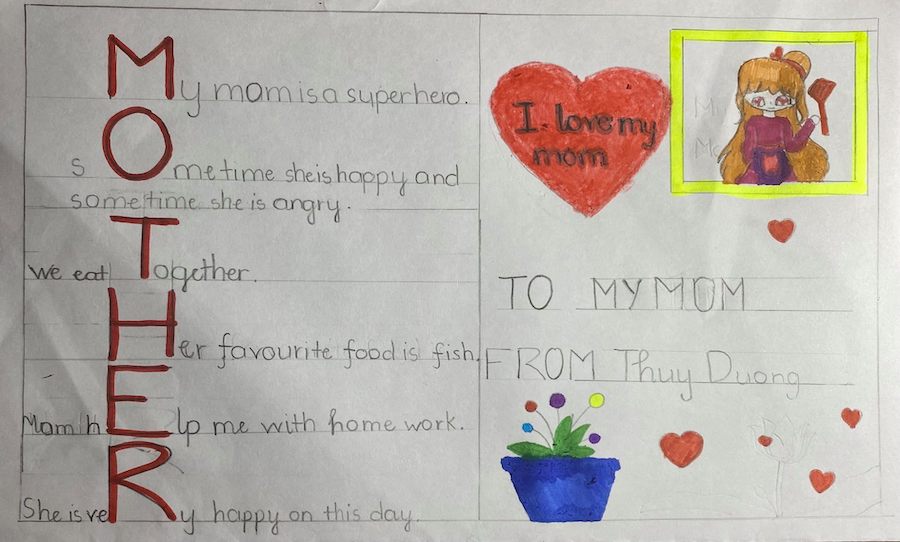 My mom is a superhero.
SOmetime she is happy and
sometime she is angry.
We eat Together.
Her favourite food is fish.
Mom hElp me with home work.
She is veRy happy on this day.
I love my
mom
TO MY MOM
FROM Thuy Duong